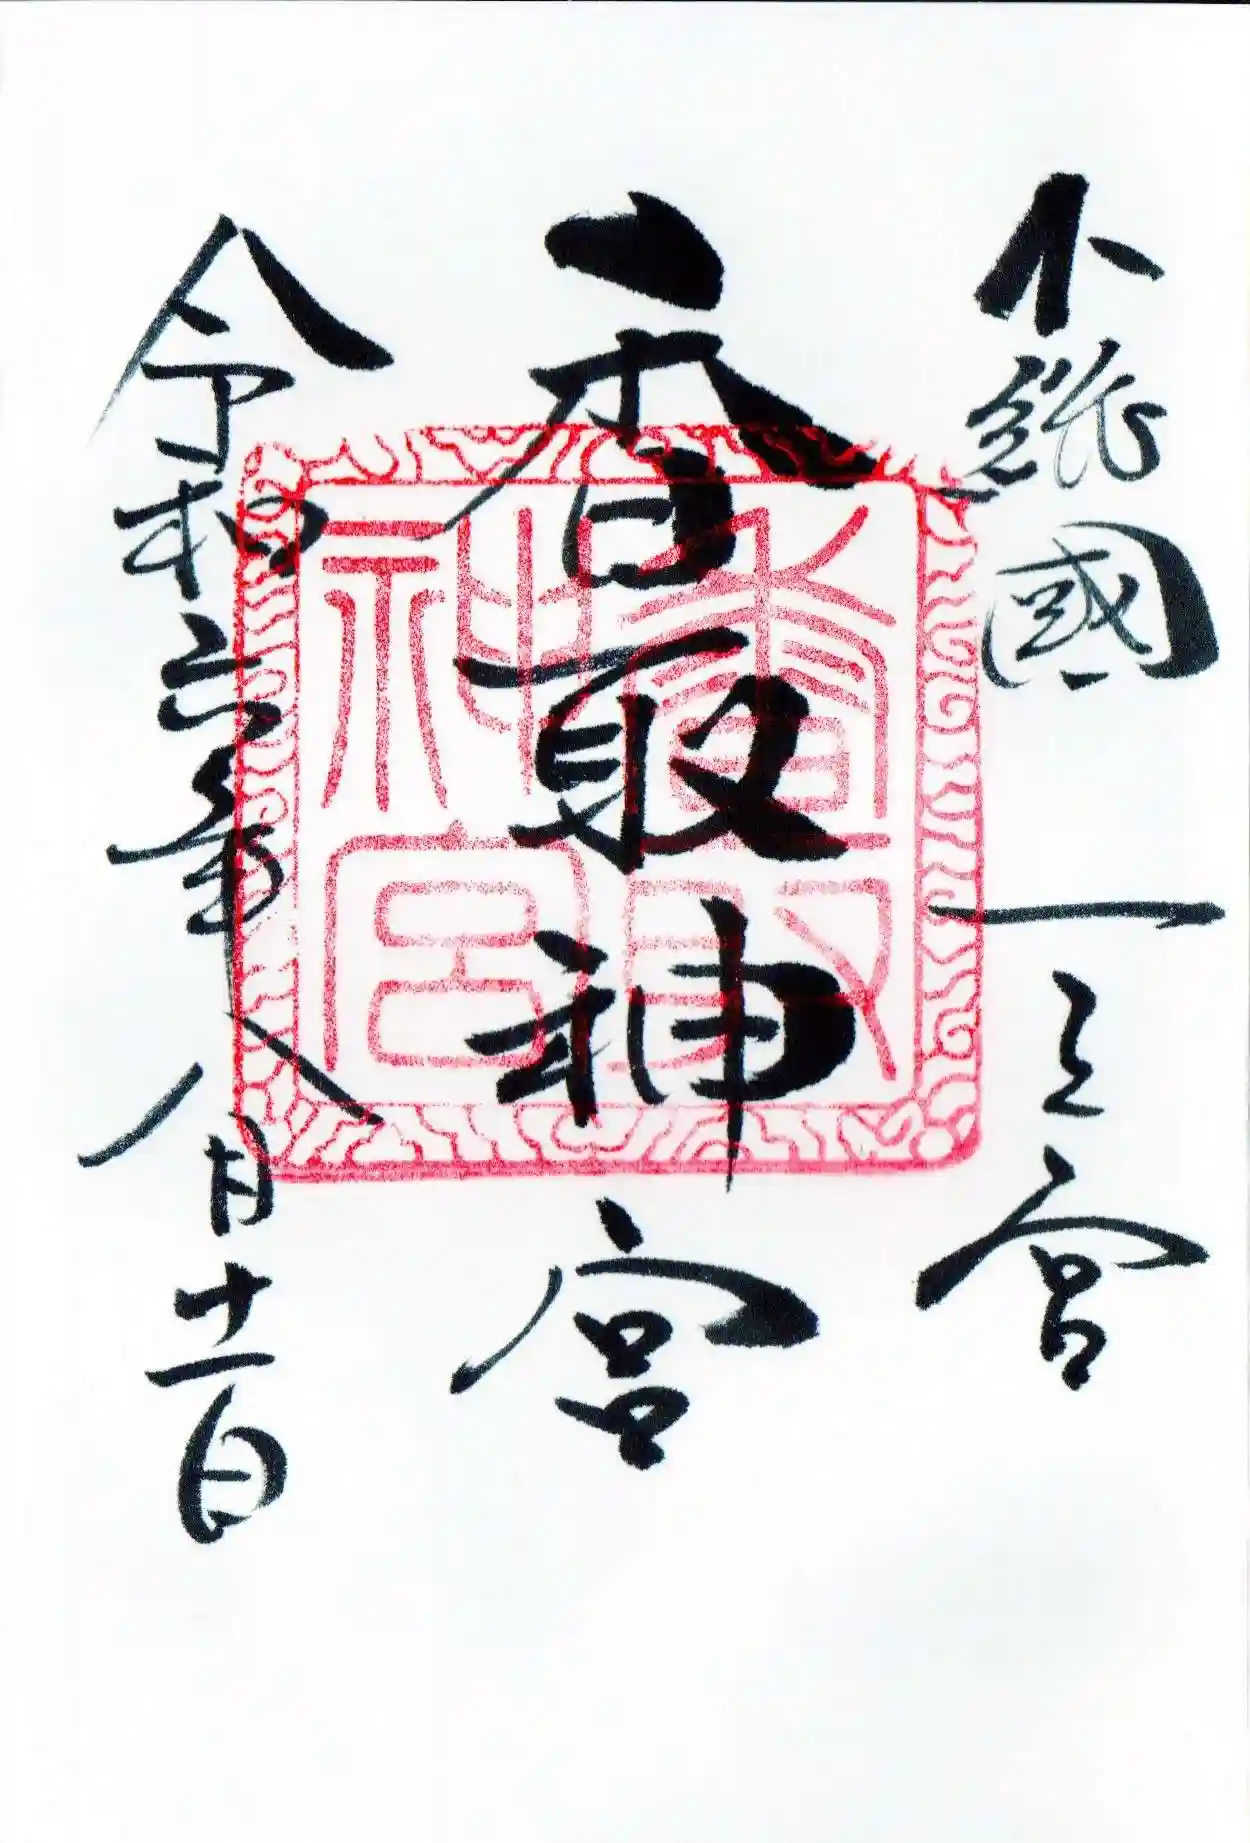 下総國 一之宮
香取神宮
令和六年八月十一日
香取
神宮